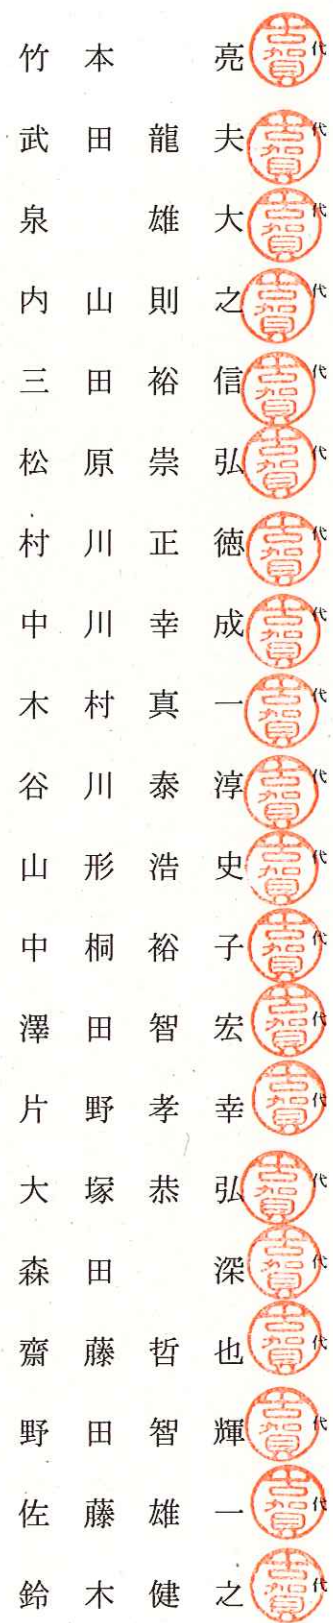 竹本 亮 古賀 代
武田龍夫 古賀 代
泉 雄大 古賀 代
内山則之 古賀 代
三田裕信 古賀 代
松原崇弘 古賀 代
村川正徳 古賀 代
中川幸成 古賀 代
木村真一 古賀 代
谷川泰淳 古賀 代
山形浩史 古賀 代
中桐裕子 古賀 代
澤田智宏 古賀 代
片野孝幸 古賀 代
大塚恭弘 古賀 代
森田 深 古賀 代
齋藤哲也 古賀 代
野田智輝 古賀 代
佐藤雄一 古賀 代
鈴木健之 古賀 代